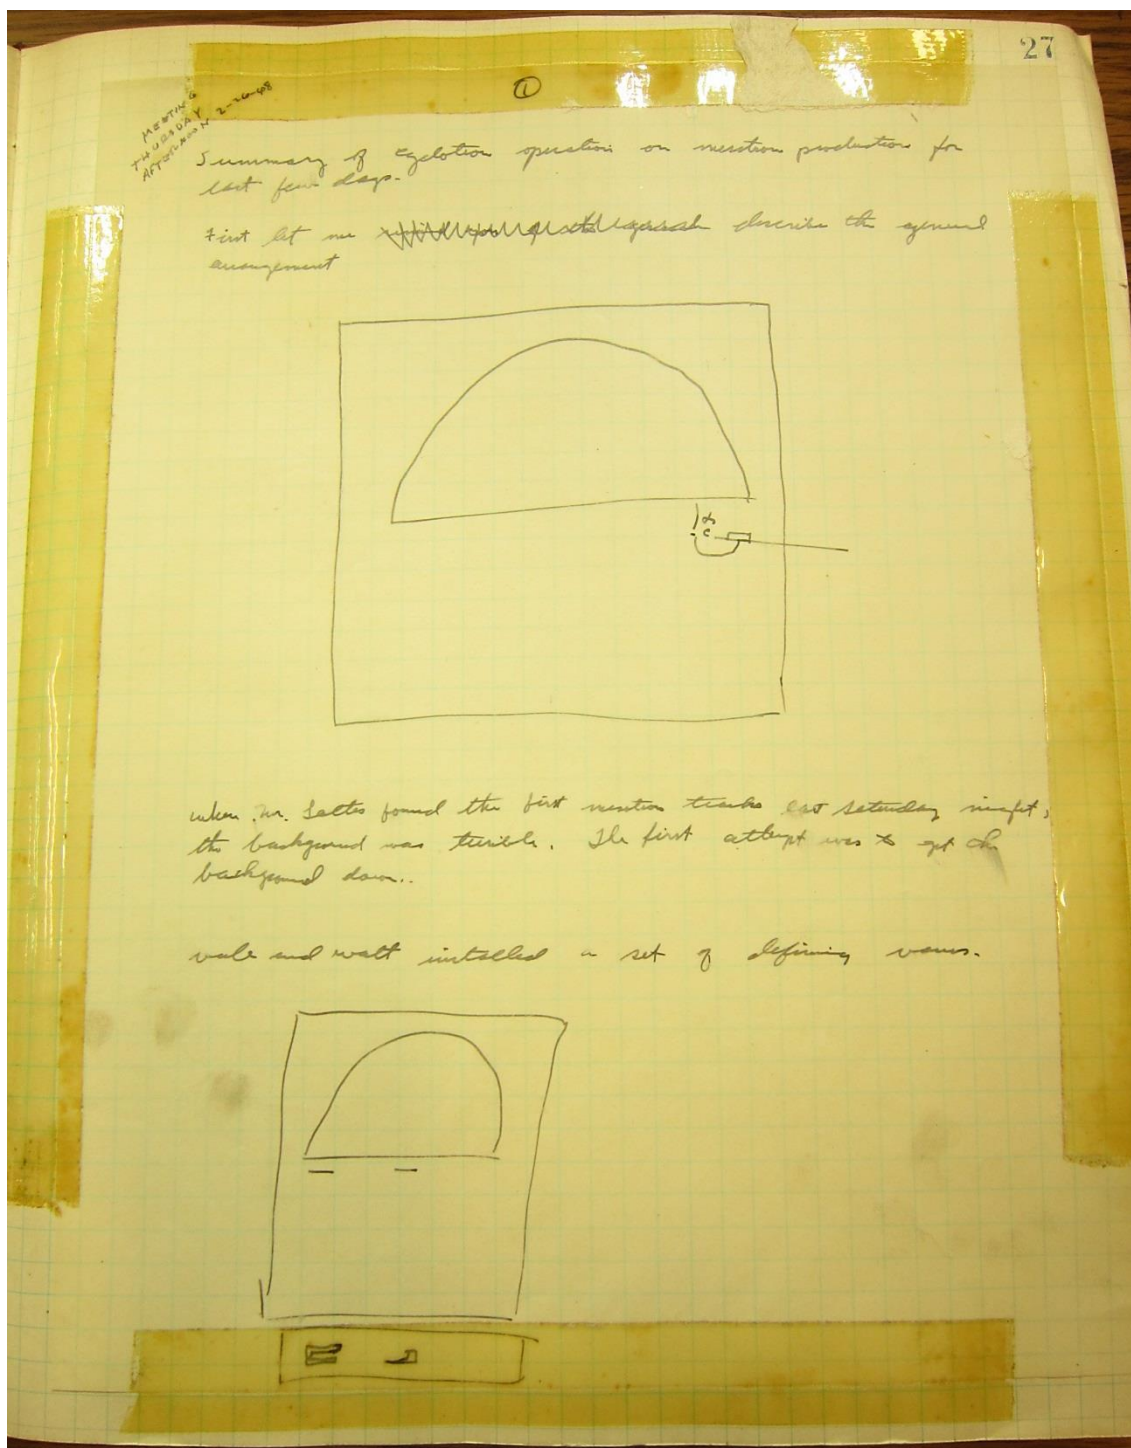 27
①
MEETING
THURSDAY
AFTERNOON 2-26-48
Summary of cyclotron operation on mesotron production for
last few days.
First let me describe the general
arrangement
α
C
when Mr. Lattes found the first mesotron tracks last Saturday night,
the background was terrible. The first attempt was to get the
background down..
vale and watt installed a set of defining vanes.